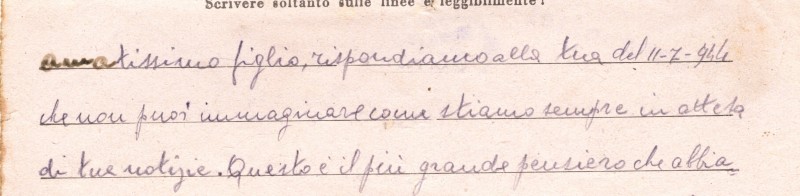 Scrivere soltanto sulle linee e leggibilmente!
amatissimo figlio, rispondiamo alla tua del 11-7-944
che non puoi immaginare come stiamo sempre in attesa
di tue notizie. Questo è il più grande pensiero che abbia-